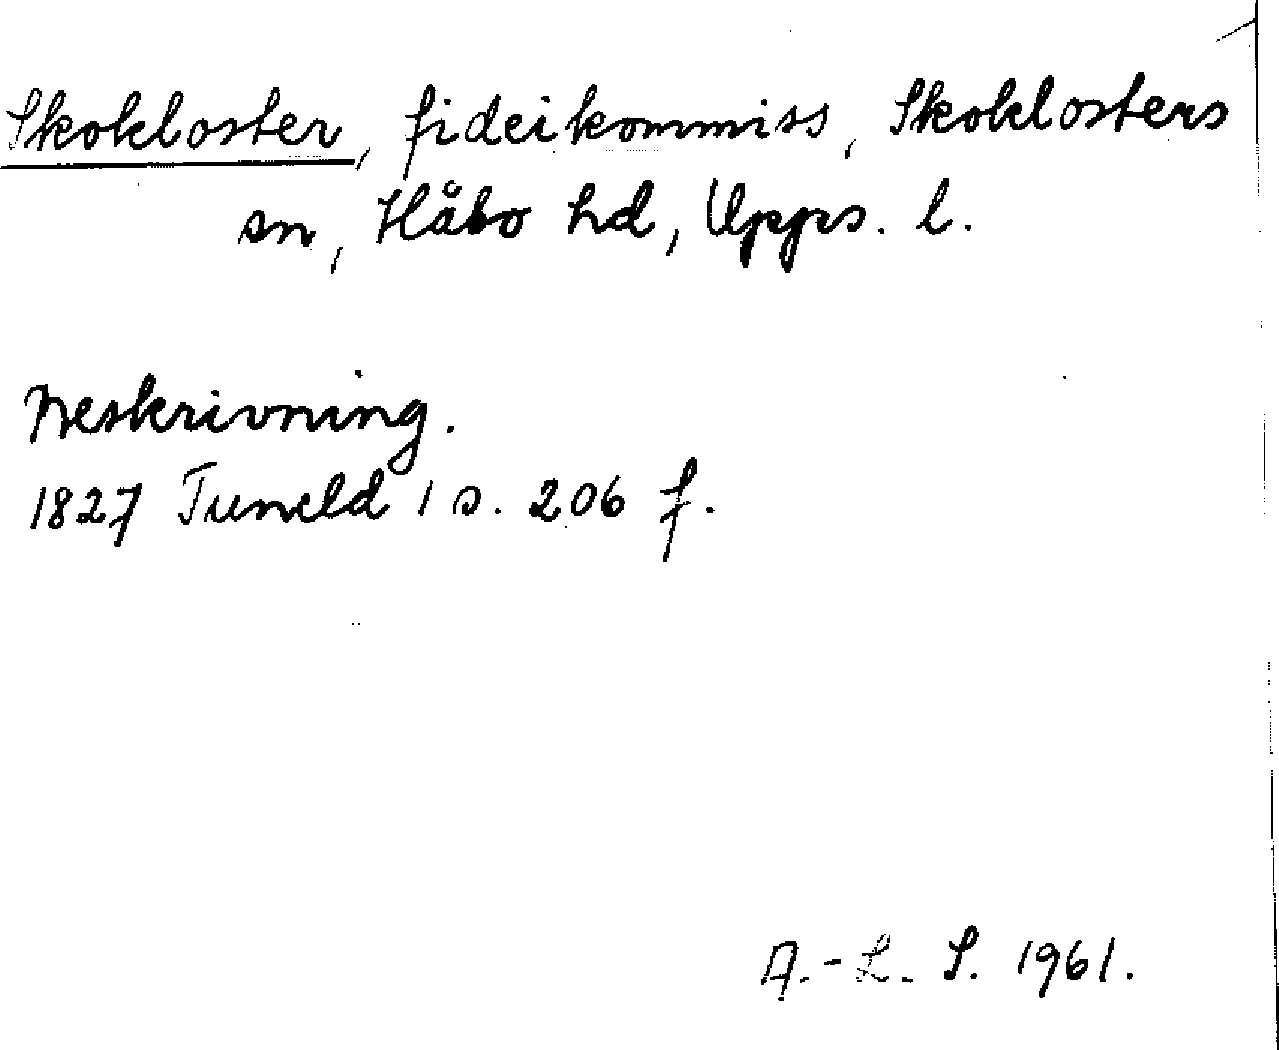 Skokloster, fideikommiss, Skoklosters
sn, Håbo hd, Upps. l.
Beskrivning.
1827 Tuneld 1 s. 206 f.
A.-L. S. 1961.